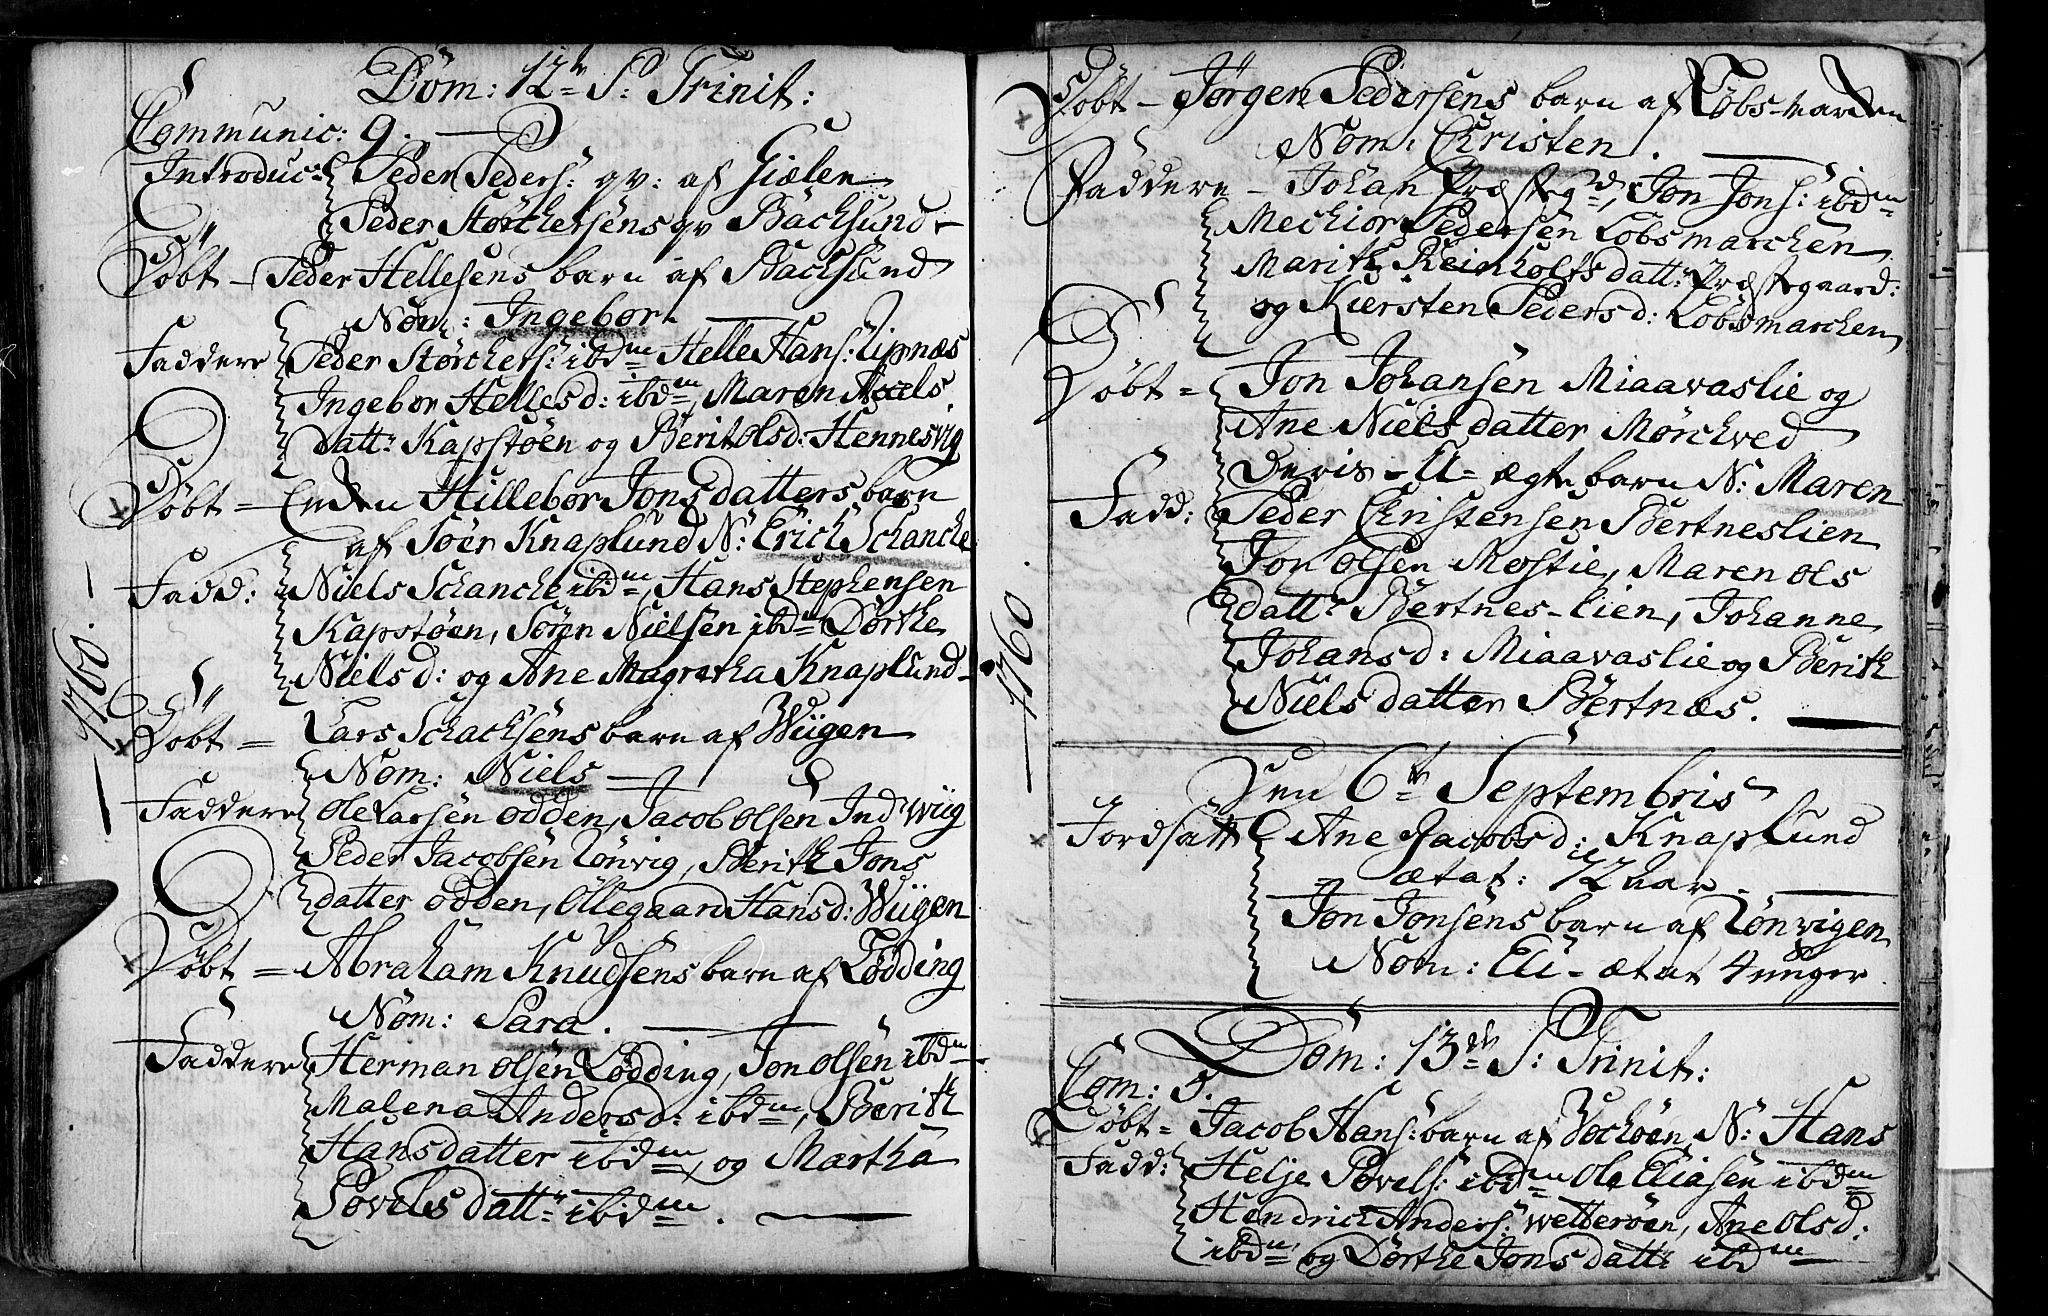 Dom: 12te S: Trinit:
Communic: 9.
Introduc: Peder Peders: qv: af Giælen
Peder Störchersens qv Backsund
Döbt - Peder Hellesens barn af Backsund
Nom: Ingebor
Faddere Peder Störchers: ibdm Helle Hans: Lipnæs
Ingebor Hellesd: ibdm, Maren Axels
datt: Kapstöen og Berit Olsd: Hennesvig
Döbt = Enken Hillebor Jonsdatters barn
af Söer Knaplund N: Erich Schancke
Fadd: Niels Schancke ibdm, Hans Stephensen
Kapstöen, Sören Nielsen ibdm Dorthe
Nielsd: og Ane Magretha Knaplund
1760.
Döbt = Lars Schachsens barn af Wiigen
Nom: Niels
Faddere Ole Larsen Odden, Jacob Olsen Ind Wiig
Peder Jacobsen Lönvig, Berith Jons
datter Odden, Ollegaard Hansd: Wiigen
Döbt = Abraham Knudsens barn af Lödding
Nom: Sara.
Faddere Herman Olsen Lödding, Jon Olsen ibdm
Malena Andersd: ibdm, Berith
Hansdatter ibdm, og Martha
Povelsdatt: ibdm.
Döbt - Jörgen Pedersens barn af Löbsmarcken
Nom: Christen.
Faddere - Johan Præstegd, Jon Jons: ibdm
Mechior Pedersen Löbsmarchen
Marith Reinholtsdatt: Præstegaard:
og Kiersten Pedersd: Löbsmarchen
Döbt = Jon Johansen Miaavaslie og
Ane Nielsdatter Mörchved
Deris U-ægte barn N: Maren
Fadd: Peder Christensen Bertneslien
Jon Olsen Mostie, Maren Ols
datt: Bertnes-lien, Johanne
Johansd: Miaavaslie og Berith
Nielsdatter Bertnæs.
1760.
Den 6te Septembris
Jordsatt Ane Jacobsd: Knaplund
ætat: 72 aar
Jon Jonsens barn af Lönvigen
Nom: Eli - ætat 4 uger.
Dom: 13de S: Trinit:
Com: 5.
Döbt = Jacob Hans: barn af Bochöen N: Hans
Fadd: Helje Povels: ibdm Ole Eliasen ibdm
Hendrich Anders: Wetteröen, Ane Olsd:
ibdm, og Dorthe Jonsdatt: ibdm